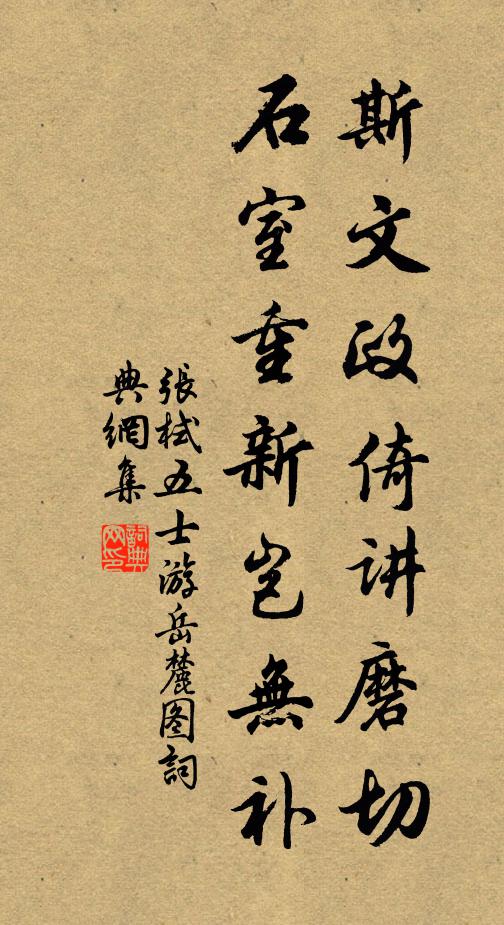 斯文政倚讲磨切
石室重新岂無补
張栻五士游岳麓图詞
典網集
詞典网印